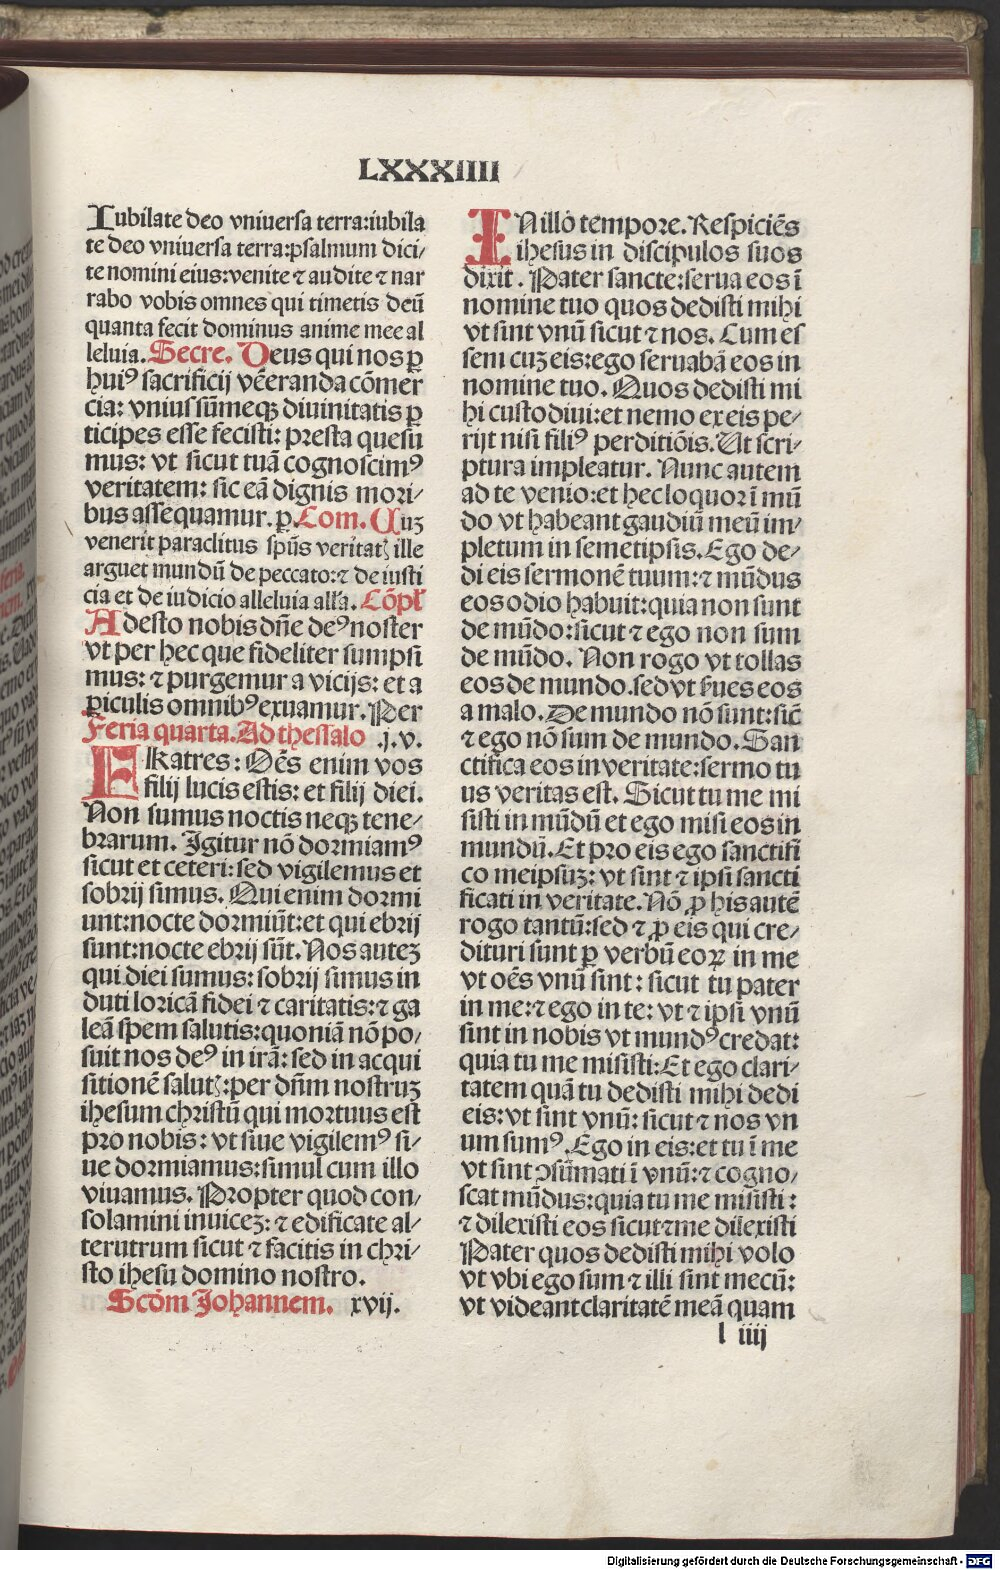 LXXXIIII
Iubilate deo vniuersa terra:iubila
te deo vniuersa terra:psalmum dici/
te nomini eius:venite ⁊ audite ⁊ nar
rabo vobis omnes qui timetis deū
quanta fecit dominus anime mee al
leluia. Secre. Deus qui nos ꝑ
huiꝰ sacrificij vēeranda cōmer
cia: vnius sūmeqꝫ diuinitatis ꝑ
ticipes esse fecisti: presta quesu
mus: vt sicut tuā cognoscimꝰ
veritatem: sic eā dignis mori/
bus assequamur. ꝑ. Com. Cuꝫ
venerit paraclitus spūs veritatꝭ ille
arguet mundū de peccato:⁊ de iusti
cia et de iudicio alleluia alľa. Cōpľ
Adesto nobis dn̄e deꝰ noster
vt per hec que fideliter sumpsi
mus: ⁊ purgemur a vicijs: et a
ꝑiculis omnibꝰ exuamur. Per
Feria quarta. Ad thessalo .j.v.
FRatres: Oēs enim vos
filij lucis estis: et filij diei.
Non sumus noctis neqꝫ tene/
brarum. Igitur nō dormiamꝰ
sicut et ceteri: sed vigilemus et
sobrij simus. Qui enim dormi
unt:nocte dormiūt:et qui ebrij
sunt:nocte ebrij sūt. Nos auteꝫ
qui diei sumus: sobrij simus in
duti loricā fidei ⁊ caritatis:⁊ ga
leā spem salutis:quoniā nō po/
suit nos deꝰ in irā: sed in acqui
sitionē salutꝭ:per dn̄m nostruꝫ
ihesum christū qui mortuus est
pro nobis: vt siue vigilemꝰ si/
ue dormiamus:simul cum illo
viuamus. Propter quod con/
solamini inuiceꝫ: ⁊ edificate al/
terutrum sicut ⁊ facitis in chri/
sto ihesu domino nostro.
Scďm Johannem. xvij.
IN illo tempore. Respiciēs
ihesus in discipulos suos
dixit. Pater sancte:serua eos ī
nomine tuo quos dedisti mihi
vt sint vnū sicut ⁊ nos. Cum es
sem cuꝫ eis:ego seruabā eos in
nomine tuo. Quos dedisti mi
hi custodiui:et nemo ex eis pe/
rijt nisi filiꝰ perditiōis. Ut scri/
ptura impleatur. Nunc autem
ad te venio:et hec loquor ī mū
do vt habeant gaudiū meū im/
pletum in semetipsis. Ego de/
di eis sermonē tuum:⁊ mūdus
eos odio habuit:quia non sunt
de mūdo:sicut ⁊ ego non sum
de mūdo. Non rogo vt tollas
eos de mundo.sed vt ẜues eos
a malo. De mundo nō sunt:sic̄
⁊ ego nō sum de mundo. San
ctifica eos in veritate:sermo tu
us veritas est. Sicut tu me mi
sisti in mūdū et ego misi eos in
mundū. Et pro eis ego sanctifi
co meipsuꝫ: vt sint ⁊ ipsi sancti
ficati in veritate. Nō ꝓ his autē
rogo tantū:sed ⁊ ꝓ eis qui cre/
dituri sunt ꝑ verbū eoꝝ in me
vt oēs vnū sint: sicut tu pater
in me:⁊ ego in te: vt ⁊ ipsi vnū
sint in nobis vt mundꝰ credat:
quia tu me misisti: Et ego clari/
tatem quā tu dedisti mihi dedi
eis: vt sint vnū: sicut ⁊ nos vn
um sumꝰ. Ego in eis:et tu ī me
vt sint ꝯsūmati ī vnū:⁊ cogno/
scat mūdus:quia tu me misisti:
⁊ dilexisti eos sicut ⁊ me dilexisti
Pater quos dedisti mihi volo
vt vbi ego sum ⁊ illi sint mecū:
vt videant claritatē meā quam
l iiij
Digitalisierung gefördert durch die Deutsche Forschungsgemeinschaft - DFG